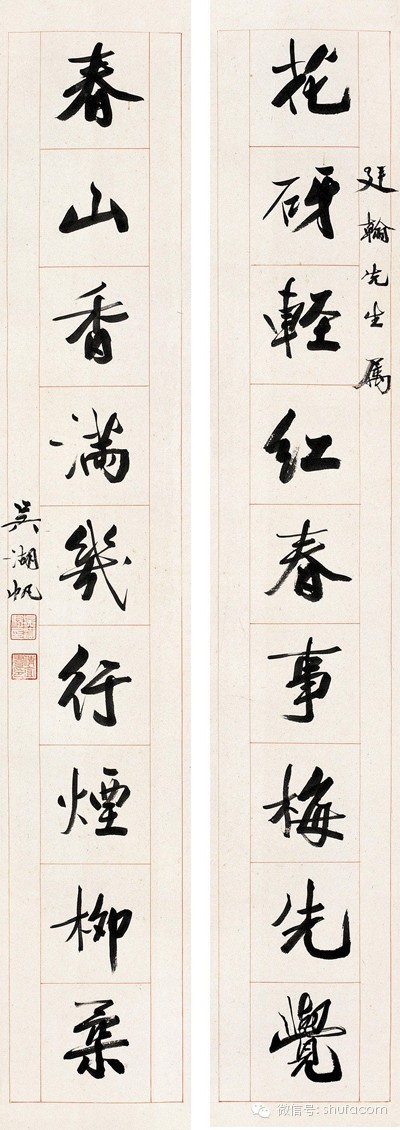 花砑輕紅春事梅先覺
廷翰先生属
春山香滿幾行煙柳柔
吳湖帆
微信号: shufacom